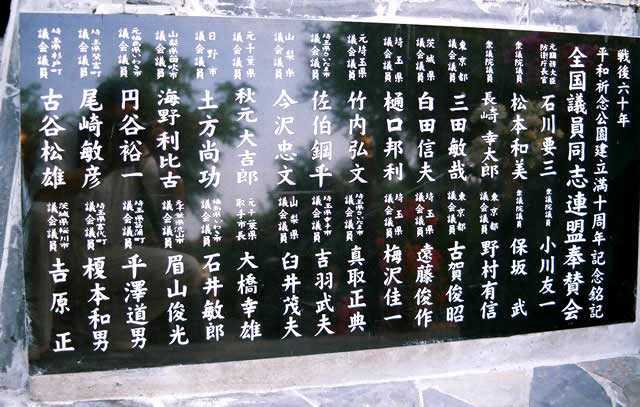 戦後六十年
平和祈念公園建立満十周年記念銘記
全国議員同志連盟奉賛会
防衛庁長官 石川要三
衆議院議員 小川友一
衆議院議員 松本和美
衆議院議員 保坂武
長崎幸太郎
東京都議会議員 野村有信
東京都議会議員 三田敏哉
東京都議会議員 古賀俊昭
茨城県議会議員 白田信夫
埼玉県議会議員 遠藤俊作
埼玉県議会議員 樋口邦利
埼玉県議会議員 梅沢佳一
元埼玉県議会議員 竹内弘文
議会議員 真取正典
埼玉県さいたま市議会議員 佐伯鋼平
議会議員 吉羽武夫
山梨県議会議員 今沢忠文
山梨県議会議員 臼井茂夫
元千葉県議会議員 秋元大吉郎
元千葉県取手市長 大橋幸雄
日野市議会議員 土方尚功
議会議員 石井敏郎
山梨県笛吹市議会議員 海野利比古
千葉県流山市議会議員 眉山俊光
議会議員 円谷裕一
議会議員 平澤道男
議会議員 尾崎敏彦
議会議員 榎本和男
議会議員 古谷松雄
茨城県桜川市議会議員 吉原正